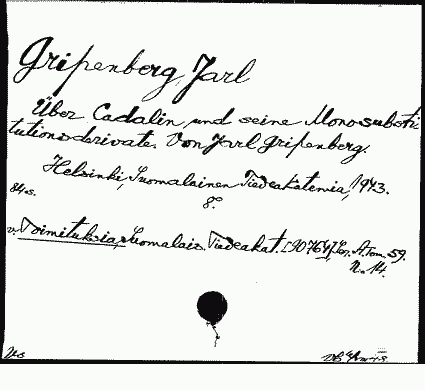 Gripenberg, Jarl
Über Cadalin und seine Monosubsti-
tutionsderivate. Von Jarl Gripenberg.
Helsinki, Suomalainen Tiedeakatemia, 1943.
84 s. 8°
v. Toimituksia, Suomalais. Tiedeakat. [90764] Ser. A. Tom. 59.
N:o 14.